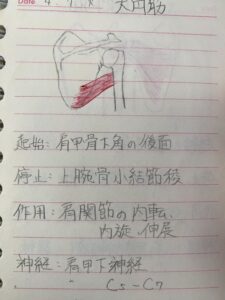 Date 4.
大円筋
起始:肩甲骨下角の後面
停止:上腕骨小結節稜
作用:肩関節の内転、
内旋、伸展
神経:肩甲下神経
〃 C5~C7